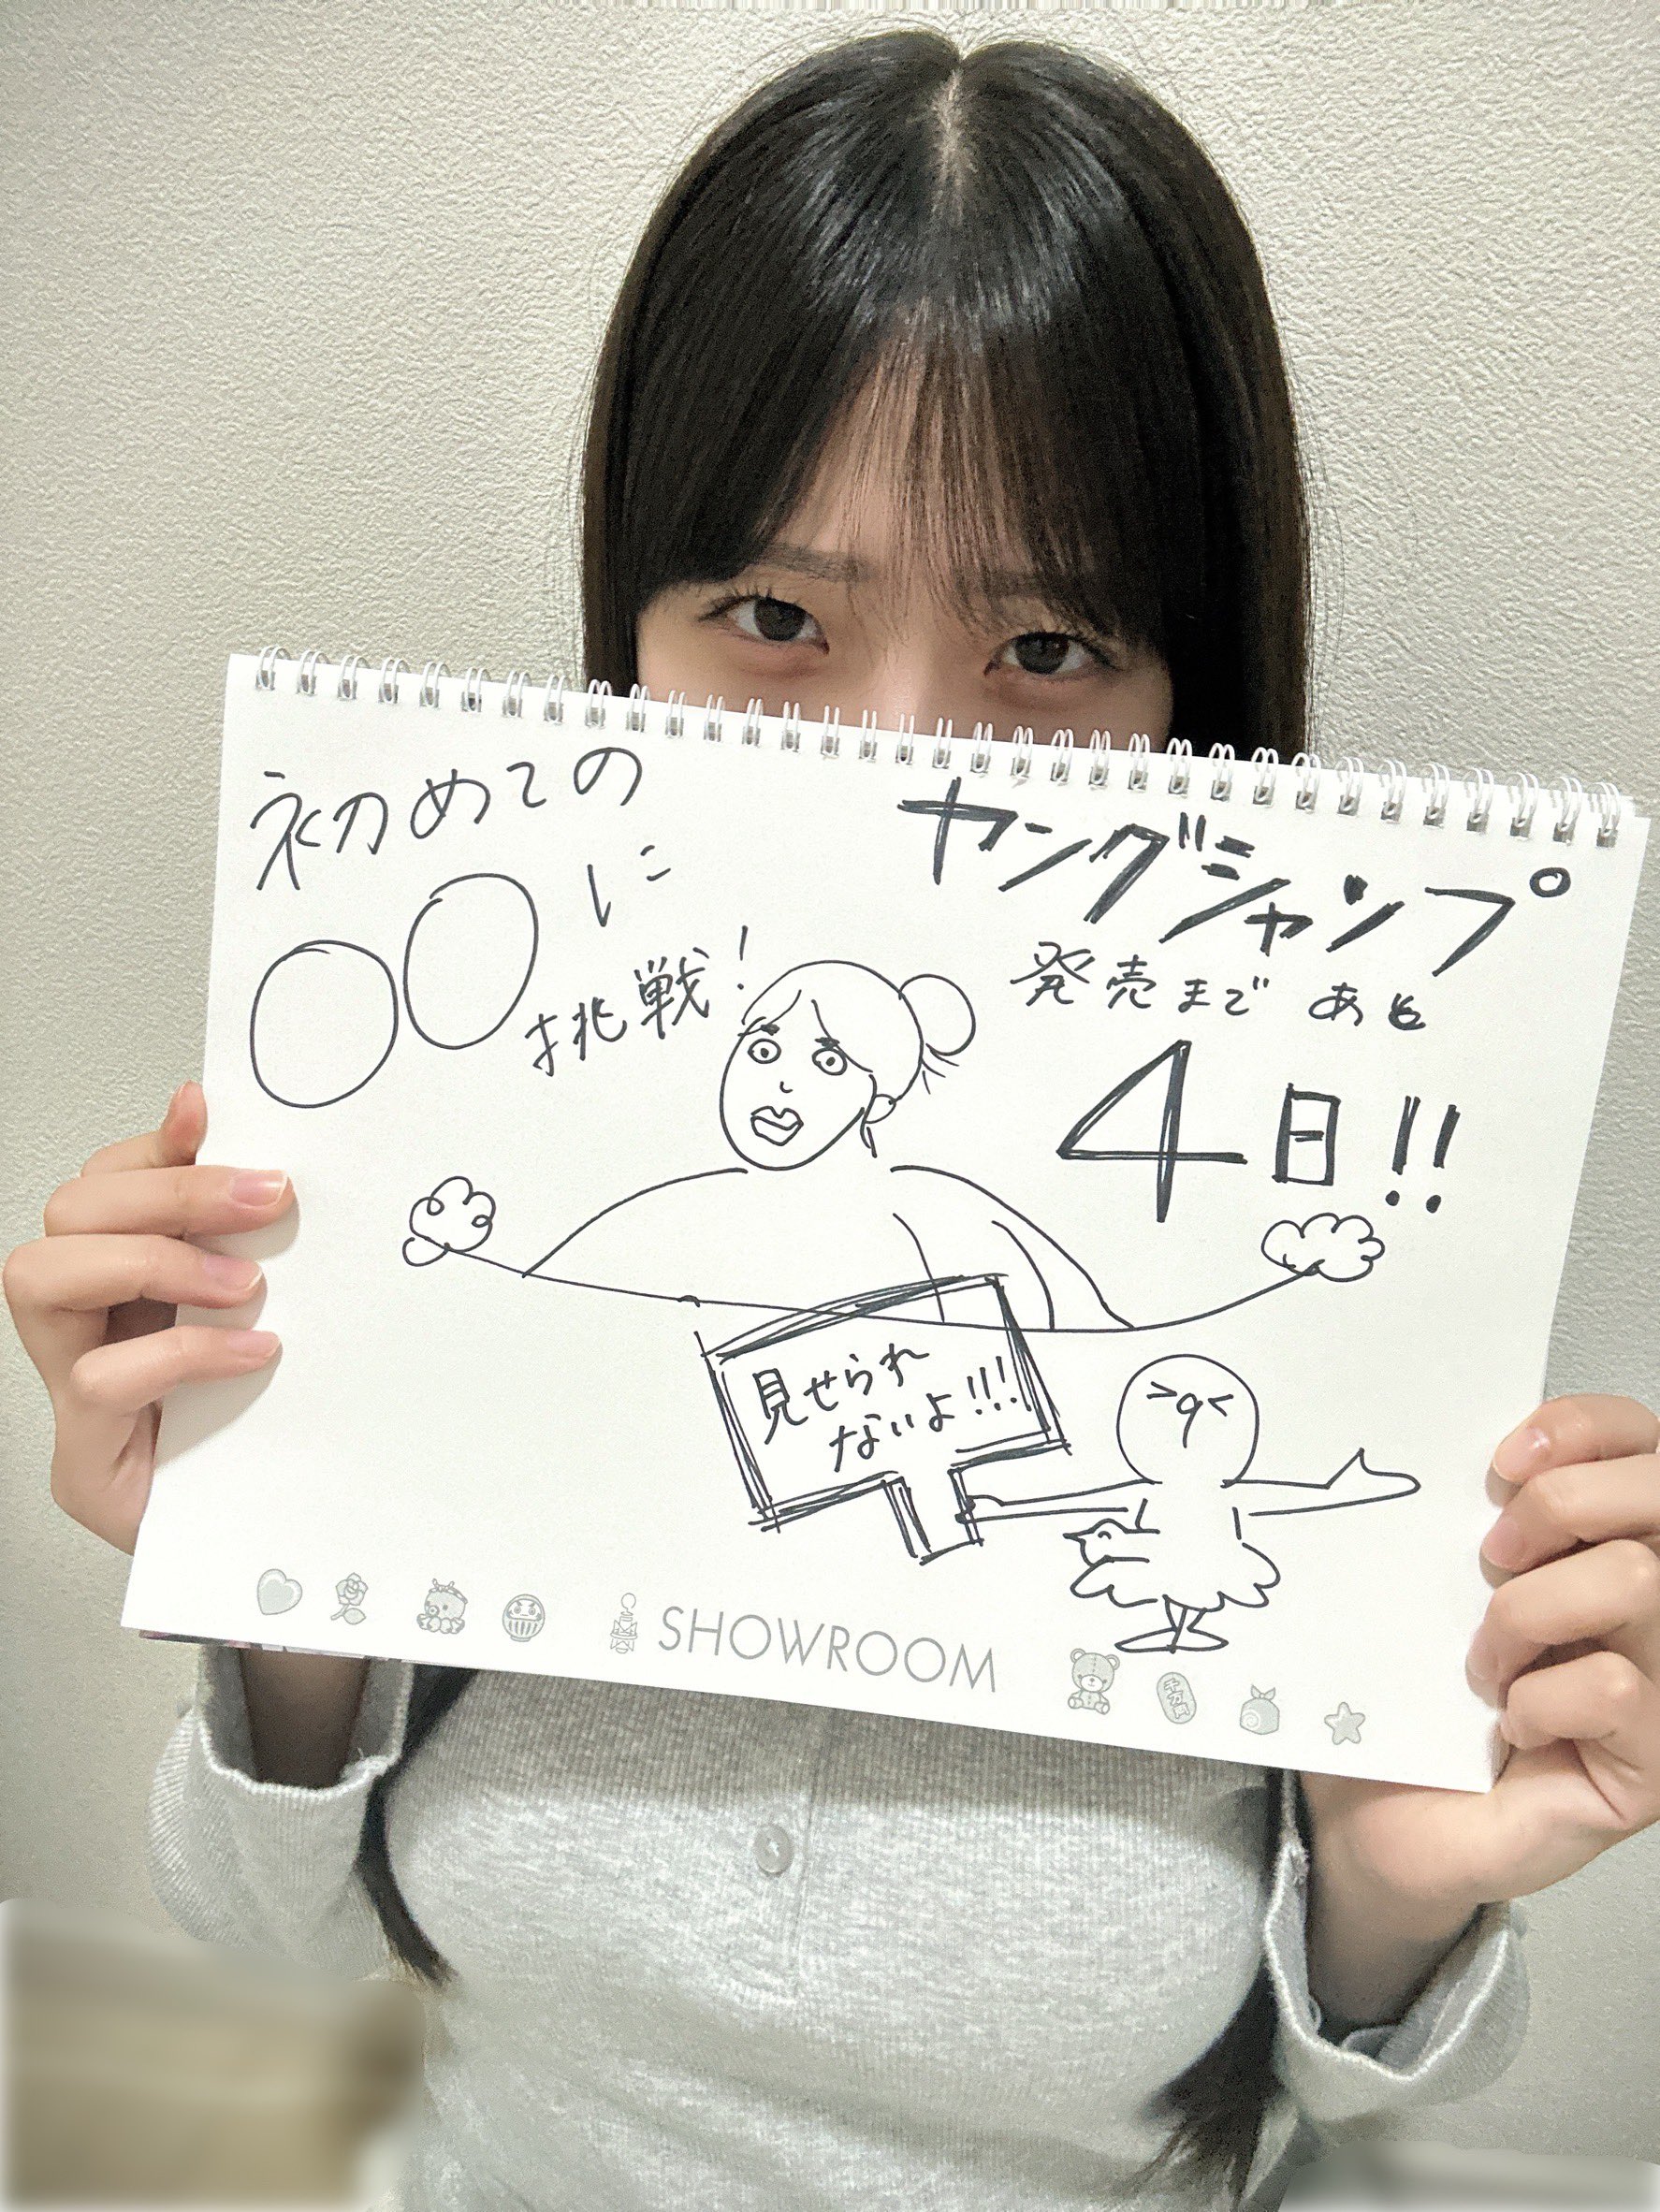 初めての
○○に
挑戦!
ヤングジャンプ
発売まで あと
4日!!
見せられ
ないよ!!!
SHOWROOM